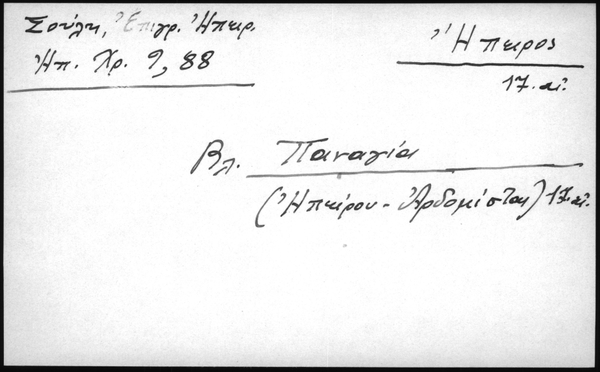 Σούλη, Ἐπιγρ. Ἠπειρ.
Ἠπ. Χρ. 9, 88
Ἤπειρος
17. αἰ.
Βλ. Παναγία
(Ἠπείρου - Ἀρδομίστας) 17. αἰ.